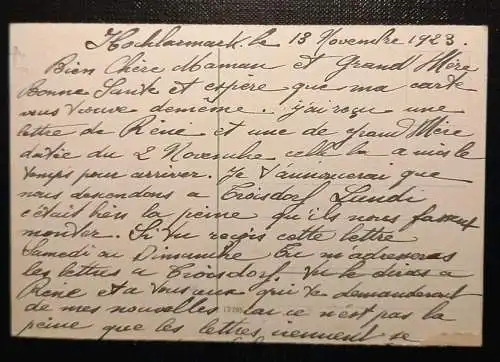 Hochlarmark. le 13 Novembre 1923.
Bien Chère Maman et Grand Mère
Bonne Santé et espère que ma carte
vous trouve demême. j'ai reçu une
lettre de Réné et une de grand Mère
datée du 2 Novembre celle la a mis le
temps pour arriver. Je t'annoncerai que
nous descendons a Troisdorf Lundi
c'était bien la peine qu'ils nous fassent
monter. Si tu reçois cette lettre
Samedi ou Dimanche Tu m'adresseras
les lettres a Troisdorf. Tu le diras a
Réné et a tous ceux qui te demanderont
de mes nouvelles car ce n'est pas la
peine que les lettres viennent se